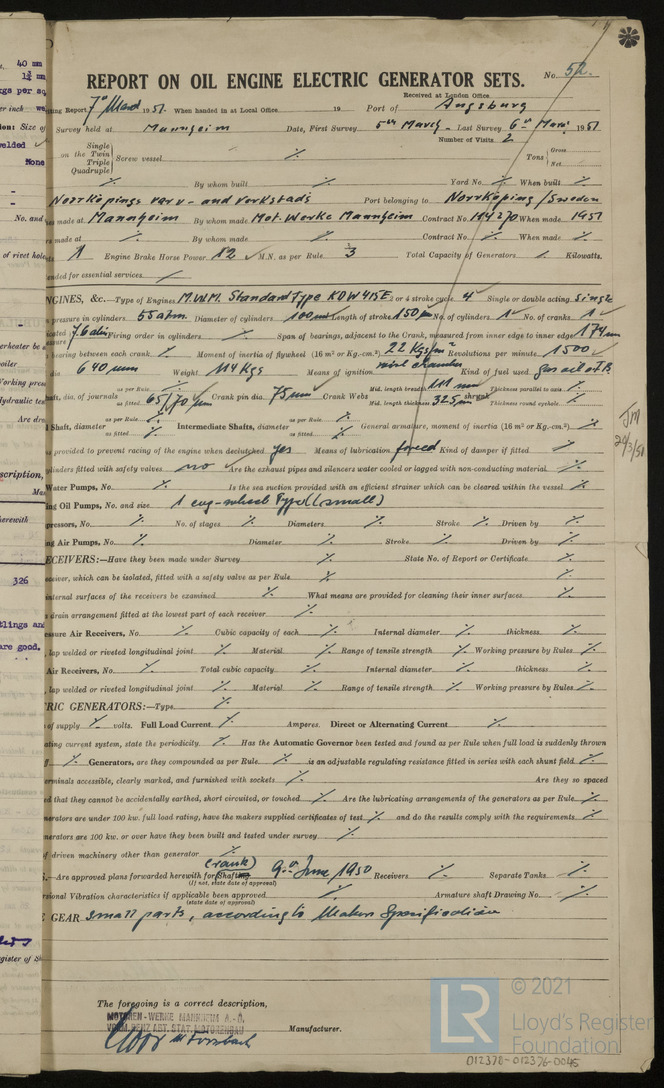 40 mm
REPORT ON OIL ENGINE ELECTRIC GENERATOR SETS.
No. 52.
Received at London Office
ing Report 7th March 1951. When handed in at Local Office 19 Port of Augsburg
Survey held at Mannheim Date, First Survey 5th March - Last Survey 6th March 1951
Number of Visits 2
Single
on the Twin
Triple
Quadruple
Screw vessel
Tons Gross
Net
By whom built Yard No. When built
Norrköpings varv - and verkstads Port belonging to Norrköping / Sweden
es made at Mannheim By whom made Mot. Werke Mannheim Contract No. When made 1951
rs made at By whom made Contract No. When made
1 Engine Brake Horse Power 12 M.N. as per Rule 3 Total Capacity of Generators Kilowatts.
ended for essential services
NGINES, &c.—Type of Engines M.W.M. Standard Type KDW 415E 2 or 4 stroke cycle 4 Single or double acting Single
pressure in cylinders 55 atm. Diameter of cylinders 100 mm Length of stroke 150 No. of cylinders 1 No. of cranks 1
Firing order in cylinders Span of bearings, adjacent to the Crank, measured from inner edge to inner edge 174 mm
bearing between each crank Moment of inertia of flywheel (16 m² or Kg.-cm.²) 22 Kgs/m² Revolutions per minute 1500
dia 640 mm Weight 114 Kgs Means of ignition Kind of fuel used gas oil
haft, dia. of journals as per Rule
as fitted 65/70 mm Crank pin dia. 75 mm Crank Webs Mid. length breadth 111 mm Thickness parallel to axis
Mid. length thickness 32.5 mm shrunk Thickness round eyehole
l Shaft, diameter as per Rule
as fitted Intermediate Shafts, diameter as per Rule
as fitted General armature, moment of inertia (16 m² or Kg.-cm.²)
s provided to prevent racing of the engine when declutched yes Means of lubrication forced Kind of damper if fitted
ylinders fitted with safety valves no Are the exhaust pipes and silencers water cooled or lagged with non-conducting material
Water Pumps, No. Is the sea suction provided with an efficient strainer which can be cleared within the vessel
ng Oil Pumps, No. and size 1 cog-wheel Type (small)
pressors, No. No. of stages Diameters Stroke Driven by
ng Air Pumps, No. Diameter Stroke Driven by
ECEIVERS:—Have they been made under Survey State No. of Report or Certificate
ceiver, which can be isolated, fitted with a safety valve as per Rule
internal surfaces of the receivers be examined What means are provided for cleaning their inner surfaces
drain arrangement fitted at the lowest part of each receiver
essure Air Receivers, No. Cubic capacity of each Internal diameter thickness
, lap welded or riveted longitudinal joint Material Range of tensile strength Working pressure by Rules
Air Receivers, No. Total cubic capacity Internal diameter thickness
, lap welded or riveted longitudinal joint Material Range of tensile strength Working pressure by Rules
RIC GENERATORS:—Type
of supply volts. Full Load Current Amperes. Direct or Alternating Current
ating current system, state the periodicity. Has the Automatic Governor been tested and found as per Rule when full load is suddenly thrown
Generators, are they compounded as per Rule is an adjustable regulating resistance fitted in series with each shunt field
erminals accessible, clearly marked, and furnished with sockets Are they so spaced
ed that they cannot be accidentally earthed, short circuited, or touched Are the lubricating arrangements of the generators as per Rule
nerators are under 100 kw. full load rating, have the makers supplied certificates of test and do the results comply with the requirements
nerators are 100 kw. or over have they been built and tested under survey
f driven machinery other than generator
.—Are approved plans forwarded herewith for Shafting (crank) 9th June 1950 Receivers Separate Tanks
(If not, state date of approval)
rsional Vibration characteristics if applicable been approved Armature shaft Drawing No.
(state date of approval)
E GEAR small parts, according to Makers Specification
The foregoing is a correct description,
MOTOREN-WERKE MANNHEIM A.-G.
VORM. BENZ ABT. STAT. MOTORENBAU
Manufacturer.
JM
326
are good.
LR
© 2021
Lloyd's Register
Foundation
012378-012376-0045